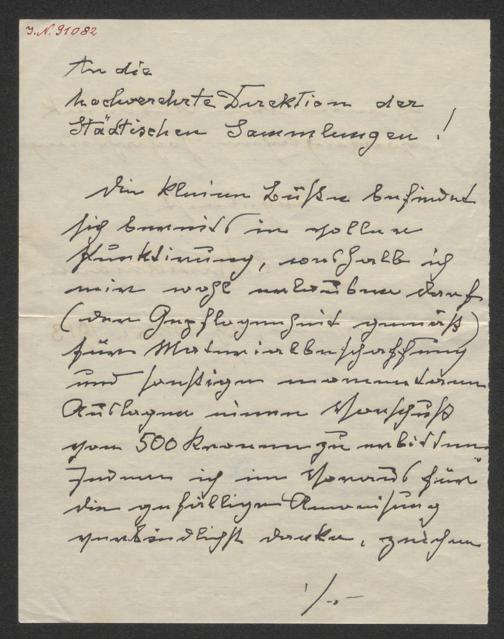 J.N. 91082
An die
hochverehrte Direktion der
Städtischen Sammlungen!
Die kleine Büste befindet
sich bereits in voller
Punktirung, weshalb ich
mir wohl erlauben darf
(der Gepflogenheit gemäß)
für Materialbeschaffung
und sonstigen momentanen
Auslagen einen Vorschuß
von 500 Kronen zu erbitten
Indem ich im Voraus für
die gefällige Anweisung
verbindlichst danke, zeichne